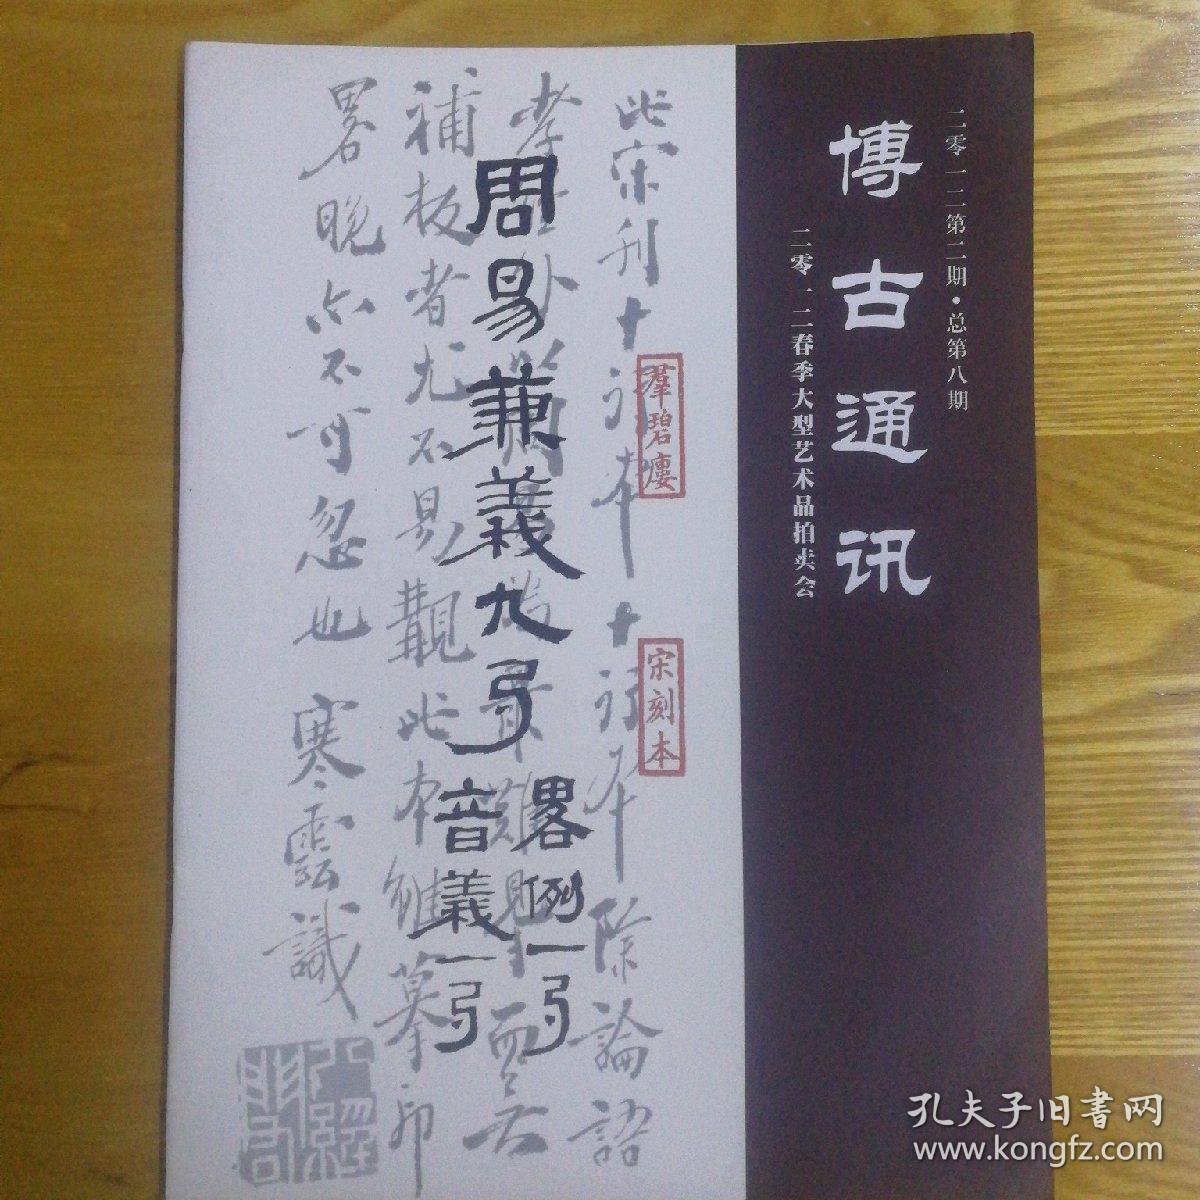 二零一二第二期·总第八期
博古通讯
二零一二春季大型艺术品拍卖会
羣碧廔
宋刻本
周易兼義九弓
畧例一弓
音義一弓
此宋刊十行本十行本除論語
補板者尤不易覯此本雖摹印
畧晚亦不可忽也 寒雲識
孔夫子旧书网
www.kongfz.com